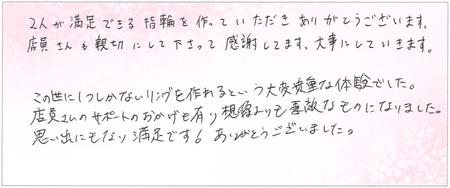 2人が満足できる指輪を作っていただきありがとうございます。
店員さんも親切にして下さって感謝してます。大事にしていきます。
この世に1つしかないリングを作れるという大変貴重な体験でした。
店員さんのサポートのおかげも有り想像よりも素敵なものになりました。
思い出にもなり満足です！ありがとうございました。